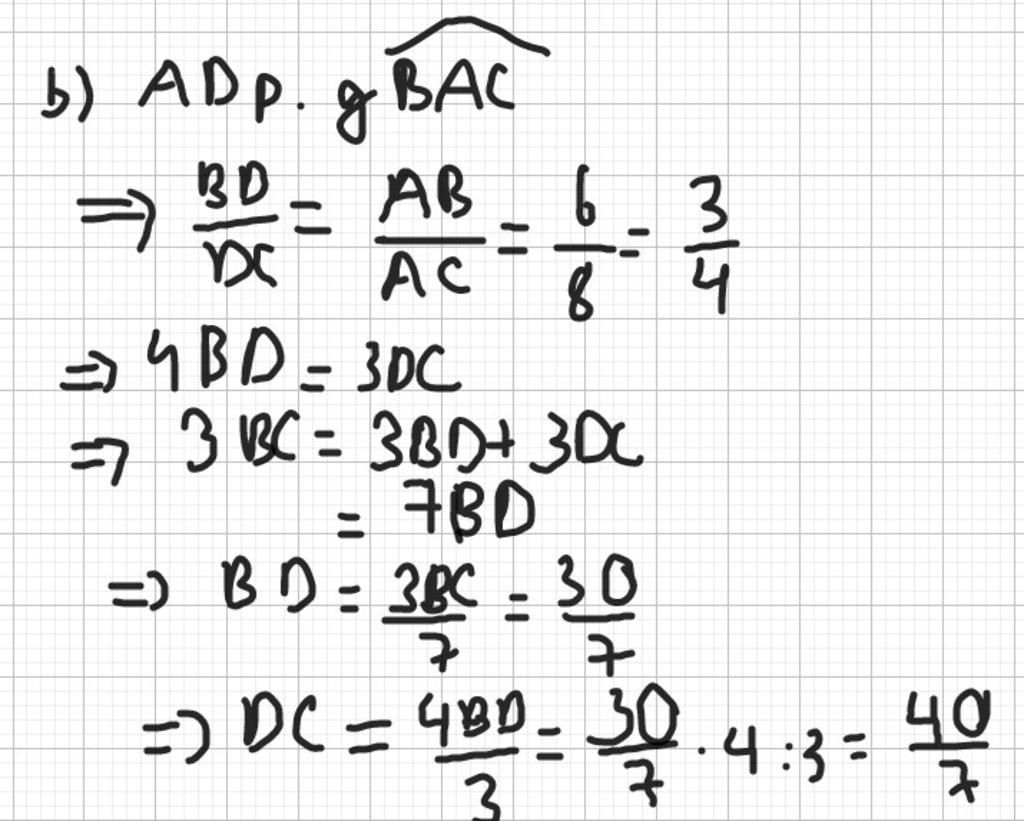 b) AD p. g \widehat{BAC}
=> BD/DC = AB/AC = 6/8 = 3/4
=> 4BD = 3DC
=> 3BC = 3BD + 3DC
= 7BD
=> BD = 3BC/7 = 30/7
=> DC = 4BD/3 = 30/7 . 4 : 3 = 40/7